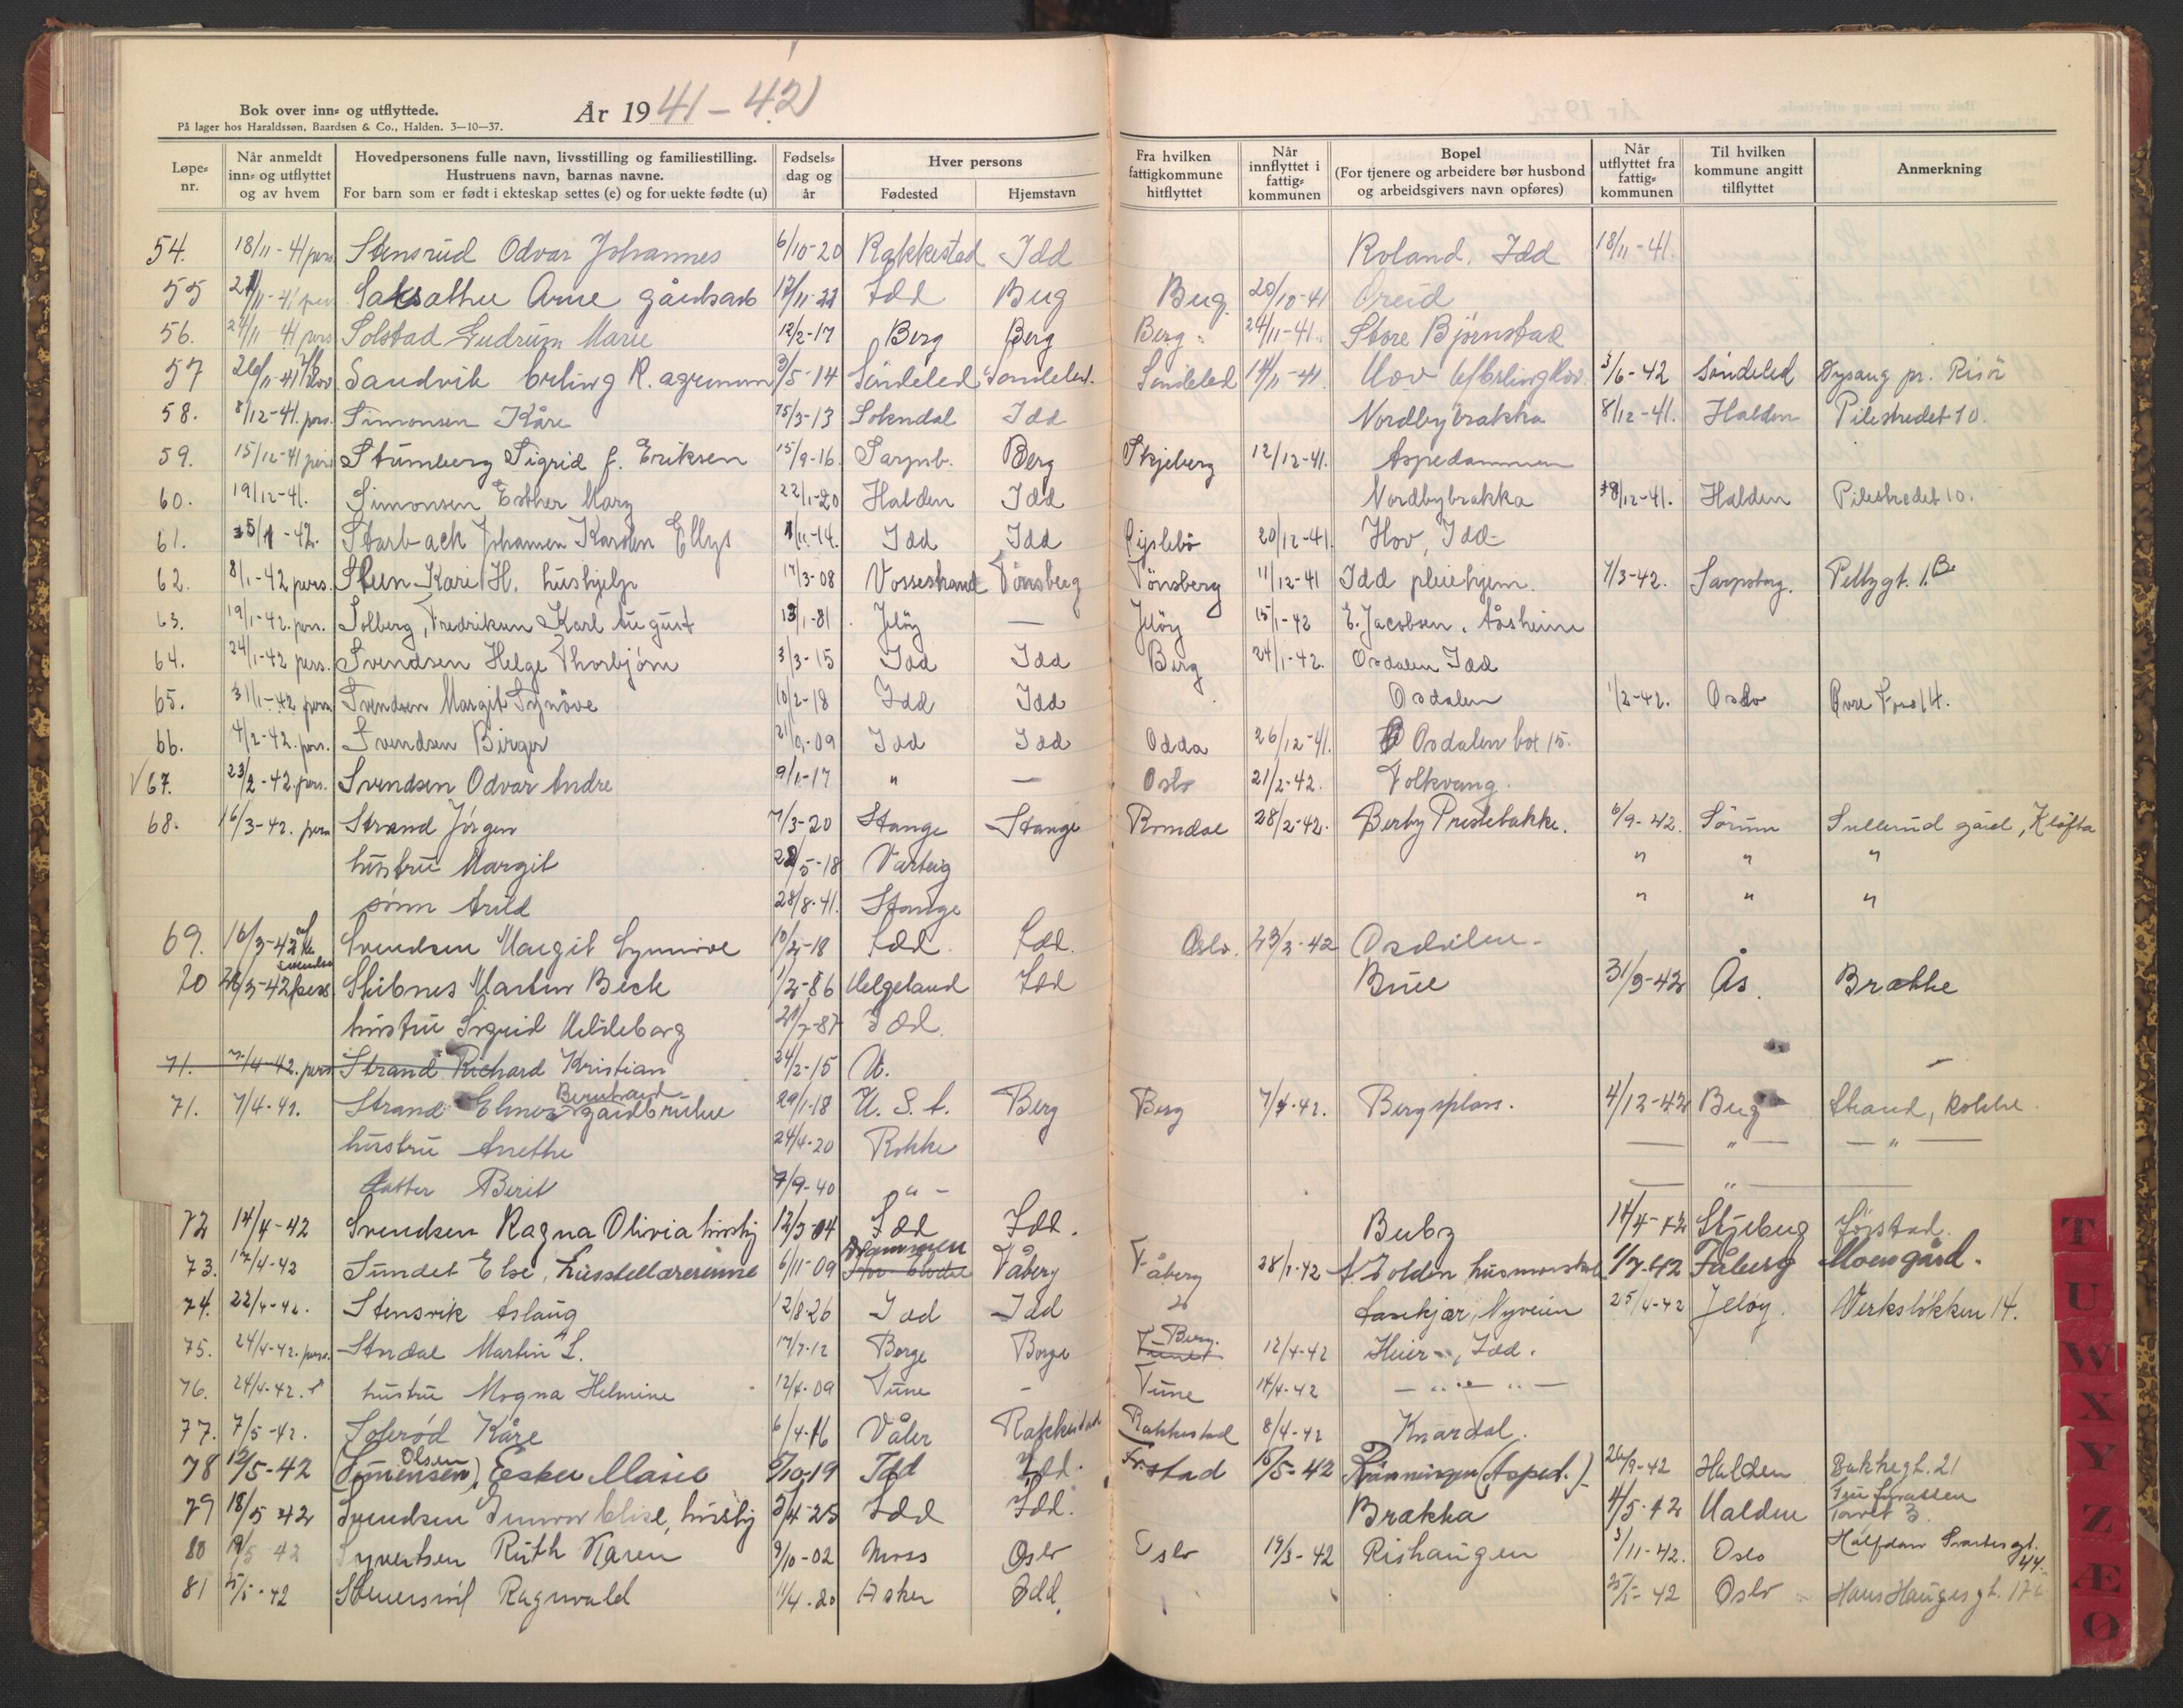 Bok over inn- og utflyttede.
På lager hos Haraldssøn, Baardsen & Co., Halden. 3—10—37.
År 1941-42
Løpenr. Når anmeldt inn- og utflyttet og av hvem Hovedpersonens fulle navn, livsstilling og familiestilling. Hustruens navn, barnas navne. For barn som er født i ekteskap settes (e) og for uekte fødte (u) Fødselsdag og år Hver persons Fødested Hjemstavn Fra hvilken fattigkommune hitflyttet Når innflyttet i fattigkommunen Bopel (For tjenere og arbeidere bør husbond og arbeidsgivers navn opføres) Når utflyttet fra fattigkommunen Til hvilken kommune angitt tilflyttet Anmerkning
54. 18/11-41 pers Stensrud Odvar Johannes 6/10-20 Rakkestad Idd Roland, Idd 18/11-41.
55 21/11-41 pers Arne gårdsarb 17/11-22 Idd Berg Berg 20/10-41 Øreid
56. 24/11-41 pers Solstad Gudrun Marie 12/2-17 Berg Berg Berg 24/11-41. Store Bjørnstad
57 26/11-41 Sandvik Erling R. agronom 3/5-14 Søndeled Søndeled. Søndeled 14/11-41. Hov 3/6-42 Søndeled Dysang pr. Risör
58. 8/12-41. pers. Simonsen Kåre 15/3-13 Sokndal Idd Nordbybrakka 8/12-41. Halden Pilestredet 10.
59. 15/12-41 pers Strømberg Sigrid f. Eriksen 15/9-16. Sarpsb. Berg Skjeberg 12/12-41. Aspedammen
60. 19/12-41. Simonsen Esther Mary 22/1-20 Halden Idd Nordbybrakka 8/12-41. Halden Pilestredet 10.
61. 5/1-42. Starback Johansen Karsten Ellys 1/11-14. Idd Idd 20/12-41 Hov, Idd
62. 8/1-42 pers. Steen Kari H. hushjelp 17/3-08 Vossestrand Tønsberg Tønsberg 11/12-41 Idd pleiehjem. 7/3-42. Sarpsborg. Pellygt. 1.B
63. 19/1-42. pers. Solberg, Fredriksen Karl August 13/1-81 Jeløy — Jeløy 15/1-42 E. Jacobsen. Åsheim
64. 24/1-42 pers. Svendsen Helge Thorbjørn 3/3-15 Idd Idd Berg 24/1-42. Osdalen Idd
65. 31/1-42 pers Svendsen Margit Synöve 10/2-18 Idd Idd Osdalen 1/2-42. Oslo Øvre Foss 14.
66. 4/2-42. pers. Svendsen Birger 21/9-09 Idd Idd Odda 26/12-41. Osdalen box 15.
√67. 23/2-42. pers. Svendsen Odvar Andre 9/1-17 " — Oslo 21/2-42. Folkvang.
68. 16/3-42. pers Strand Jörgen 7/3-20 Stange Stange Romdal 28/2-42. Berby Prestebakke. 6/9-42. Sörum Sullerud gård, Kløfta
hustru Margit 22/5-18 Varteig " " "
sönn Arild 28/8-41. Stange " " "
69. 16/3-42 Svendsen Margit Synnöve 10/2-18 Idd. Idd. Oslo. 23/2-42 Osdalen.
70 26/3-42 pers Skibnes Martin Beck 1/2-86 Helgeland Idd Bøe 31/3-42 Ås. Brække
hustru Sigrid Hildeborg 21/7-87 Idd.
71. 7/4-42. pers Strand Richard Kristian 24/2-15 U. —
71. 7/4-42. Strand Elmer Bernhard gårdbruker 29/1-18 U.S.A. Berg Berg 7/4-42. Bergsplass. 4/12-42 Berg Strand, Rokke.
hustru Anethe 24/4-20 Rokke — — " — — " —
datter Berit 7/9-40 — " — — " —
72 14/4-42 Svendsen Ragna Olivia hushj 12/3-04 Idd Idd. Berby 14/4-42 Skjeberg Sørstad.
73. 17/4-42 Sundet Else, husstellærerinne 6/11-09 Drammen Fåberg Fåberg 28/1-42 husmorskole 1/7-42 Fåberg Moengård.
74. 22/4-42. Stensvik Aslaug 12/8-26 Idd Idd Nyveien 25/4-42 Jeløy. Verksløkken 14.
75. 24/4-42. pers. Stordal Martin L. 17/7-12 Borge Borge Berg. 12/4-42 Heier, Idd.
76. 24/4-42. hustru Magna Helmine 12/4-09 Tune - Tune 14/4-42 — " — " —
77. 7/5-42. Solerød Kåre 6/4-16 Våler Rakkestad Rakkestad 8/4-42 Knardal.
78 12/5-42 (Simensen) Olsen, Ester Marie 5/10-19 Idd Idd. Fr.stad 10/5-42 Rönningen (Asped.) 26/9-42 Halden Bakkegt. 21
79 18/5 42 Svendsen Gunvor Elise, hushj 5/4-25 Idd Idd. Brakka 4/5-42 Halden Torvet 3
80 19/5 42 Syvertsen Ruth Karen 9/10-02 Moss Oslo Oslo 19/3-42 Rishaugen 3/11-42. Oslo Halfdan Svartes gt. 44.
81 5/5-42 Ragnvald 11/4-20 Asker Idd. 25/5-42 Oslo Hans Hauges gt. 17
T
U
W
X
Y
Z
Æ
Ø